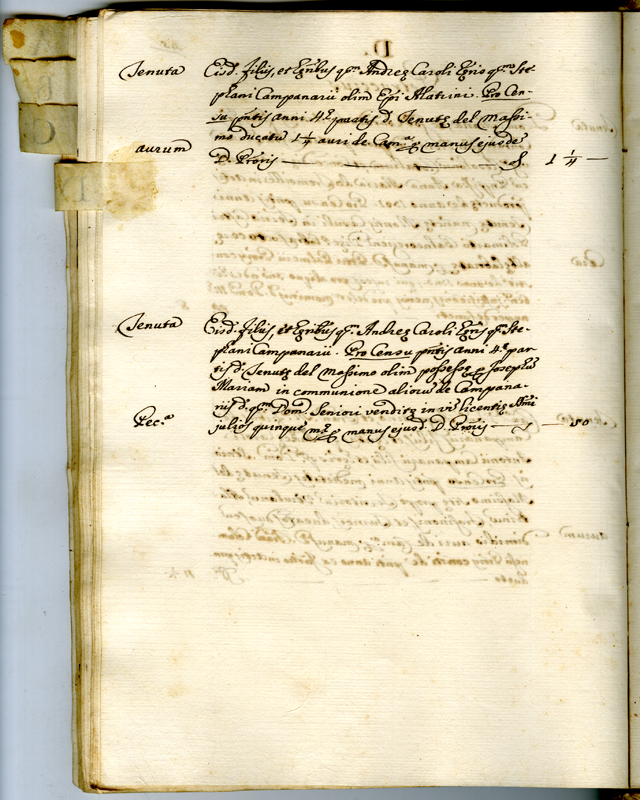 Tenuta Eisd. filijs, et hęribus qm Andreę Caroli hęris qm Ste-
phani Campanarij olim Epi Alatrini. Pro Cen-
su pntis anni 4ę partis d. Tenutę del Massi-
mo ducatu 1 1/4 auri de Camą manus ejusdē
aurum D. Proris — 1 1/4 —
Tenuta Eisd. filijs, et hęribus qm Andreę Caroli hęris qm Ste-
phani Campanarij. Pro Censu pntis anni 4ę par-
tis d. Tenutę del Massimo olim possessę Josephus
Mariam in communione aliorū de Campana-
rijs d. qm Dom. Seniori venditę in licentię
Pec.ª julios quinque manus ejusd. D. Proris — 50